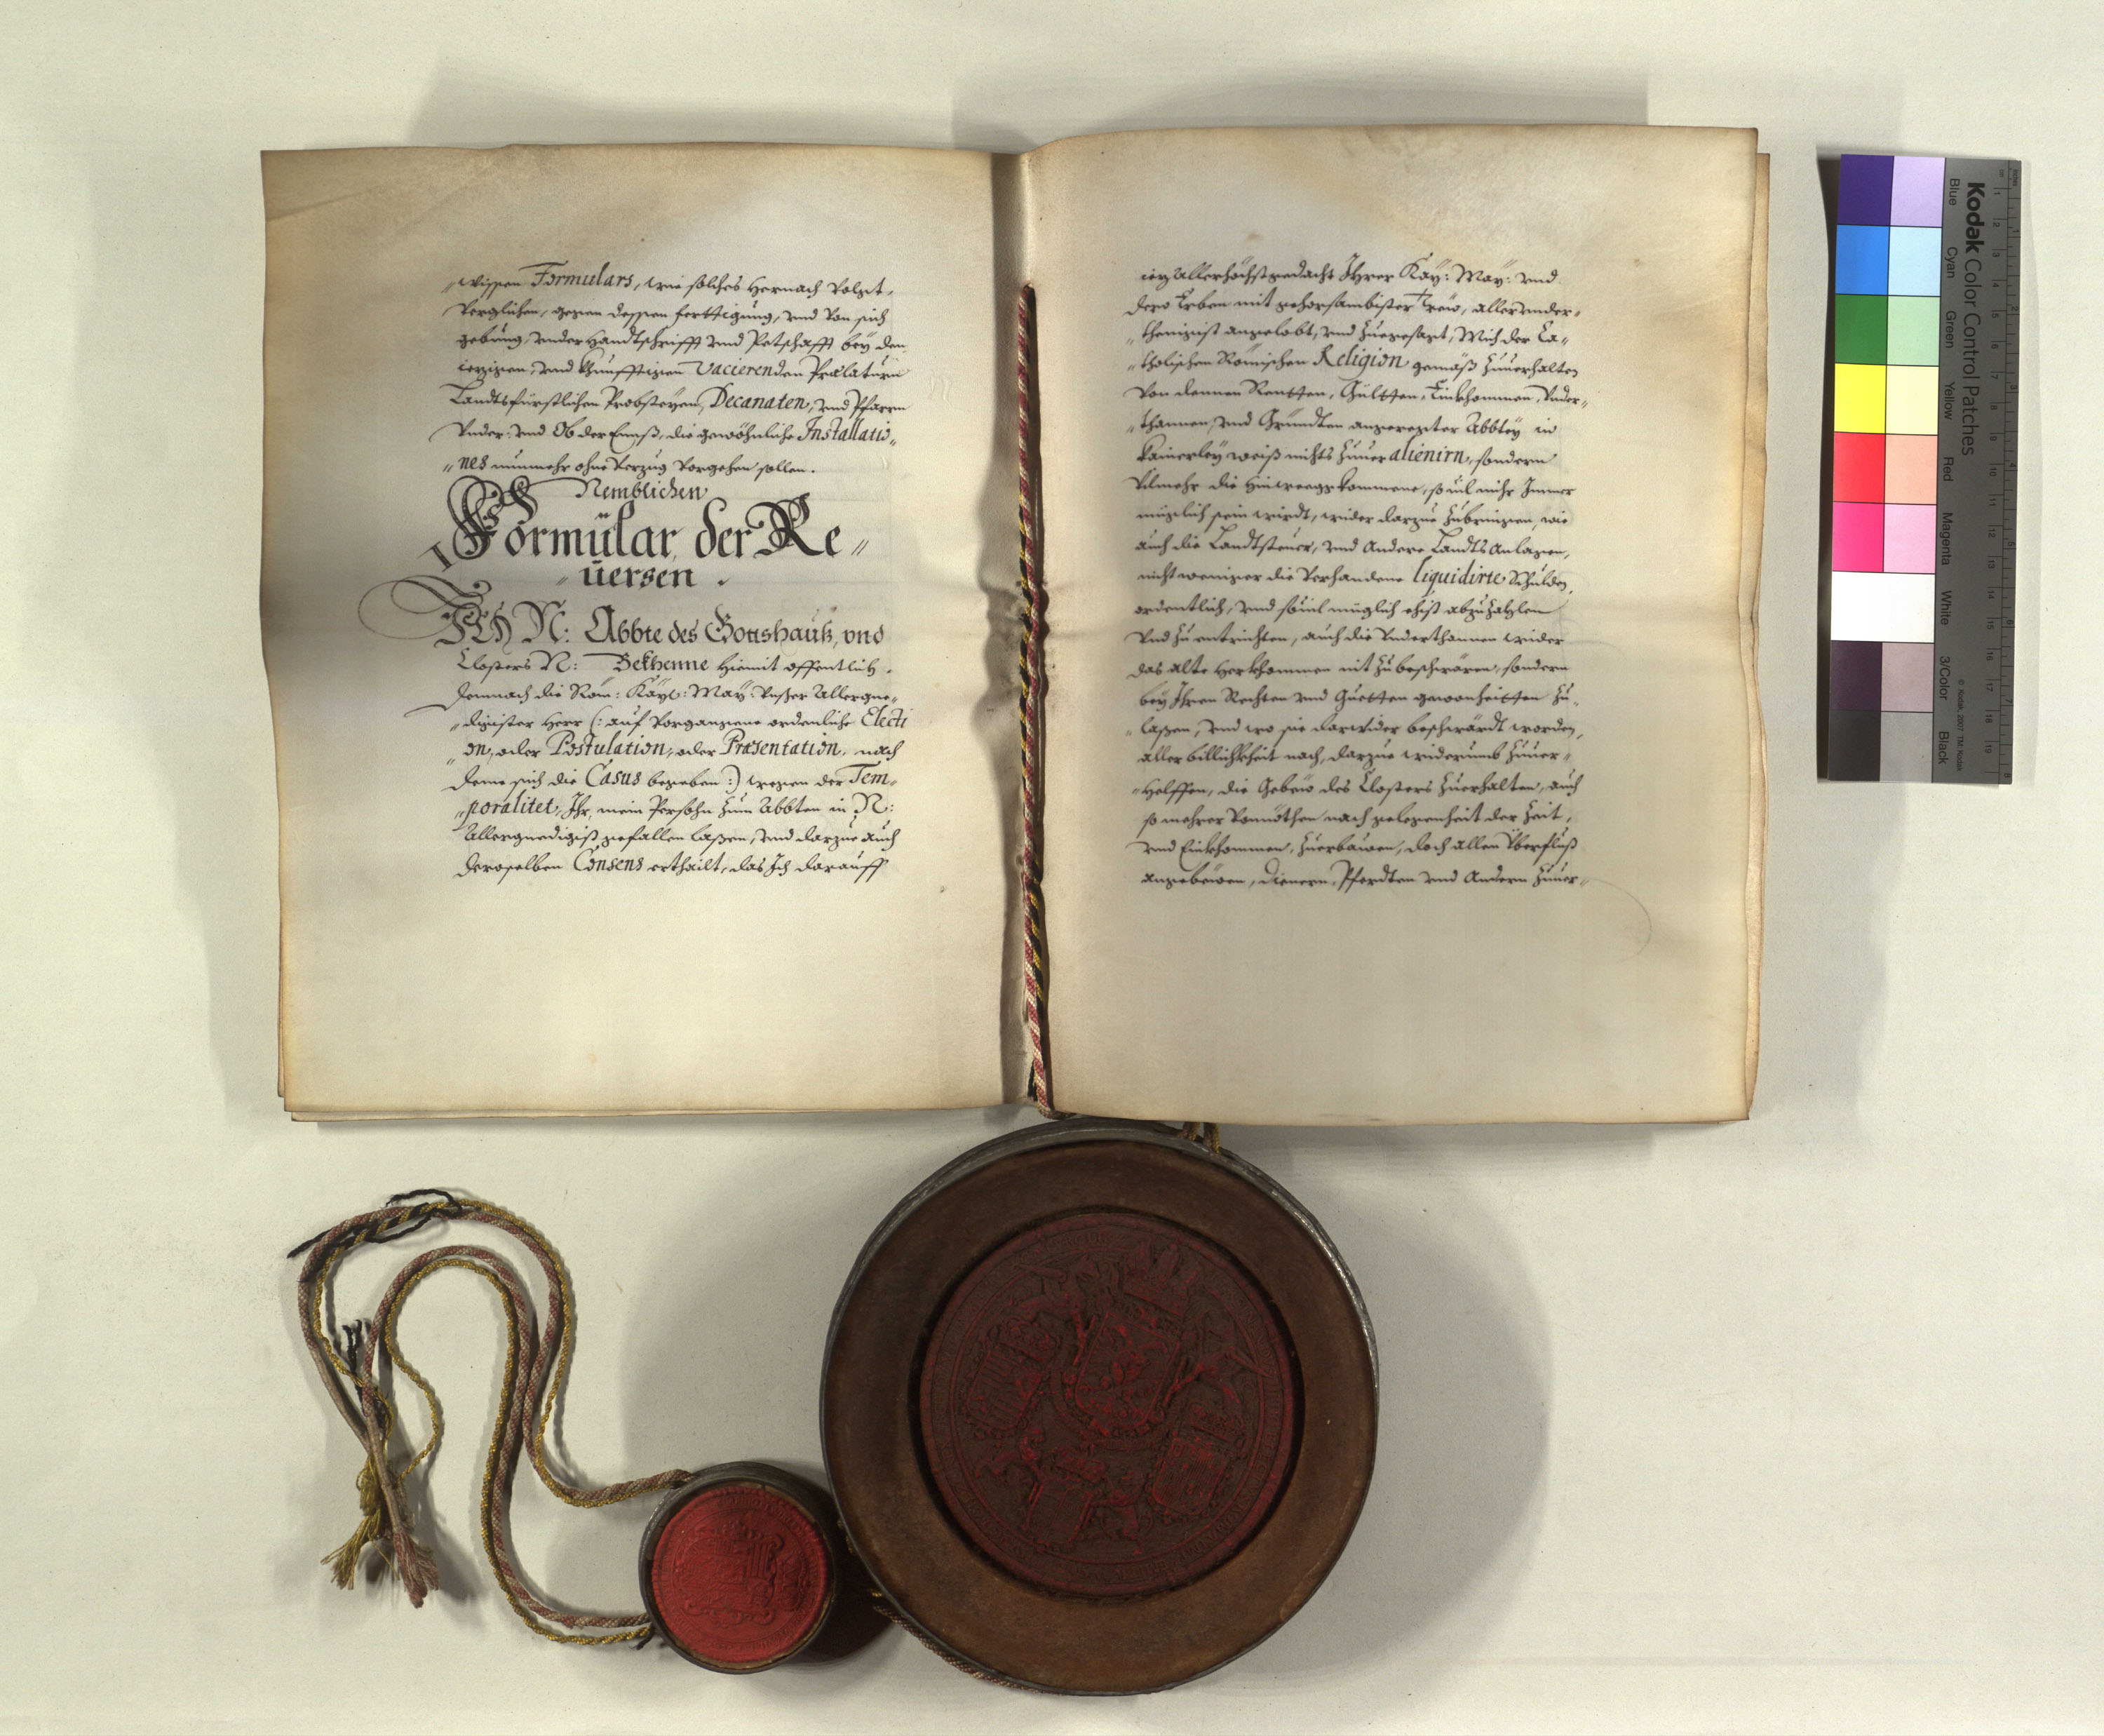 „wissen Formulars, wie solches hernach volgt,
verglichen, gegen dessen ferttigung, vnd von sich
gebung, vnder Handtschrifft vnd Petschafft bey den
ieczigen, vnd khunfftigen Vacierenden Prælaturn
Landtsfürstlichen Probsteyen, Decanaten, vnd Pfarrn
vnder: vnd Ob der Ennß, die gewöhnliche Installatio„
„nes nunmehr ohne verzug vorgehen sollen.
Nemblichen
Formular der Re„
„uersen.
Ich N: Abbte des Gottshauß, vnd
Closters N: Bekhenne hiemit offentlich.
Demnach die Röm: Kayl: May: vnßer Allergne„
„digister Herr (: auf vorgangene ordenliche Electi
„on, oder Postulation, oder Præsentation, nach
deme sich die Casus begeben :) wegen der Tem„
„poralitet, Ihr, mein Persohn zum Abbten in N:
Allergnedigist gefallen laßen, vnd darzue auch
deroselben Consens erthailt, das Ich darauff
iezt Allerhöchstgedacht Ihrer Kay: May: vnd
dero Erben mit gehorsambister Trew, allervnder„
„thenigist angelobt, vnd zuegesagt, Mich der Ca„
„tholischen Römischen Religion gemäß zuuerhalten
von dennen Rentten, Gültten, Einkhommen, vnder„
„thannen, vnd Gründten angeregter Abbtey in
kainerley weiß nichts zuuer alienirn, sondern
vilmehr die hinweegkommene, souil mihr Immer
müglich sein wirdt, wider darzue zubringen, wie
auch die Landtsteuer, vnd Andere Landts Anlagen,
nicht weniger die verhandene liquidirte Schulden,
ordentlich, vnd souil müglich ehist abzuzahlen
vnd zu entrichten, auch die vnderthannen wider
das alte herkhommen nit zu beschwären, sondern
bey Ihren Rechten vnd Guetten gewonheitten zu„
„laßen, vnd wo sie darwider beschwärdt worden,
aller billichkheit nach, darzue widerumb zuuer„
„helffen, die Gebew des Closters zuerhalten, auch
so mehrer vonnöthen nach gelegenheit der Zeit,
vnd Einkhommen, zuerbawen, doch allen Überfluß
angebewen, Dienern, Pferdten vnd Andern zuuer„
Kodak Color Control Patches
Blue Cyan Green Yellow Red Magenta White 3/Color Black
© Kodak, 2007 TM: Kodak